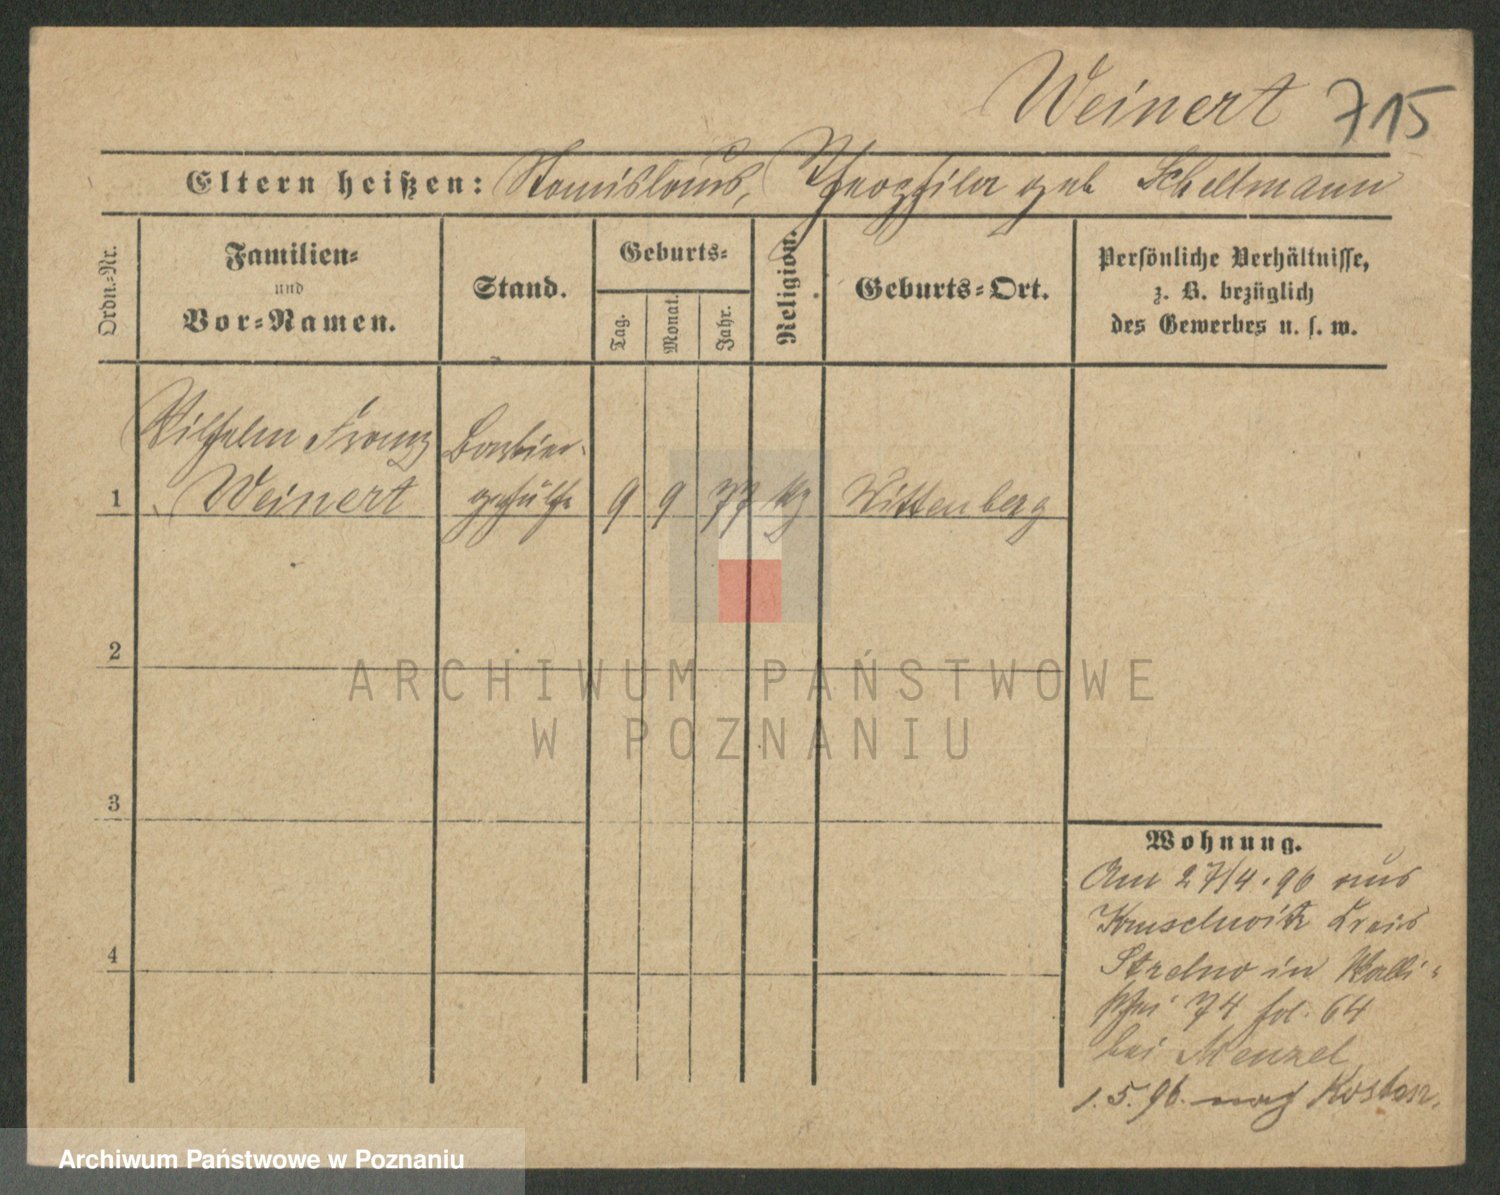 Weinert 715
Eltern heißen: Stanislaus, Theophila geb Scheltmann
Ordn.-Nr.
Familien-
und
Vor-Namen.
Stand.
Geburts-
Tag.
Monat.
Jahr.
Religion.
Geburts-Ort.
Persönliche Verhältnisse,
z. B. bezüglich
des Gewerbes u. s. w.
Wilhelm Franz Barbier-
1 Weinert gehülfe 9 9 77 kg Wittenberg
2
ARCHIWUM PAŃSTWOWE
W POZNANIU
3
Wohnung.
Am 27/4.96 aus
Kruschwitz Kreis
Strelno in Walli-
4
schei 74 fol. 64
bei Menzel
1.5.96. nach Kosten.
Archiwum Państwowe w Poznaniu